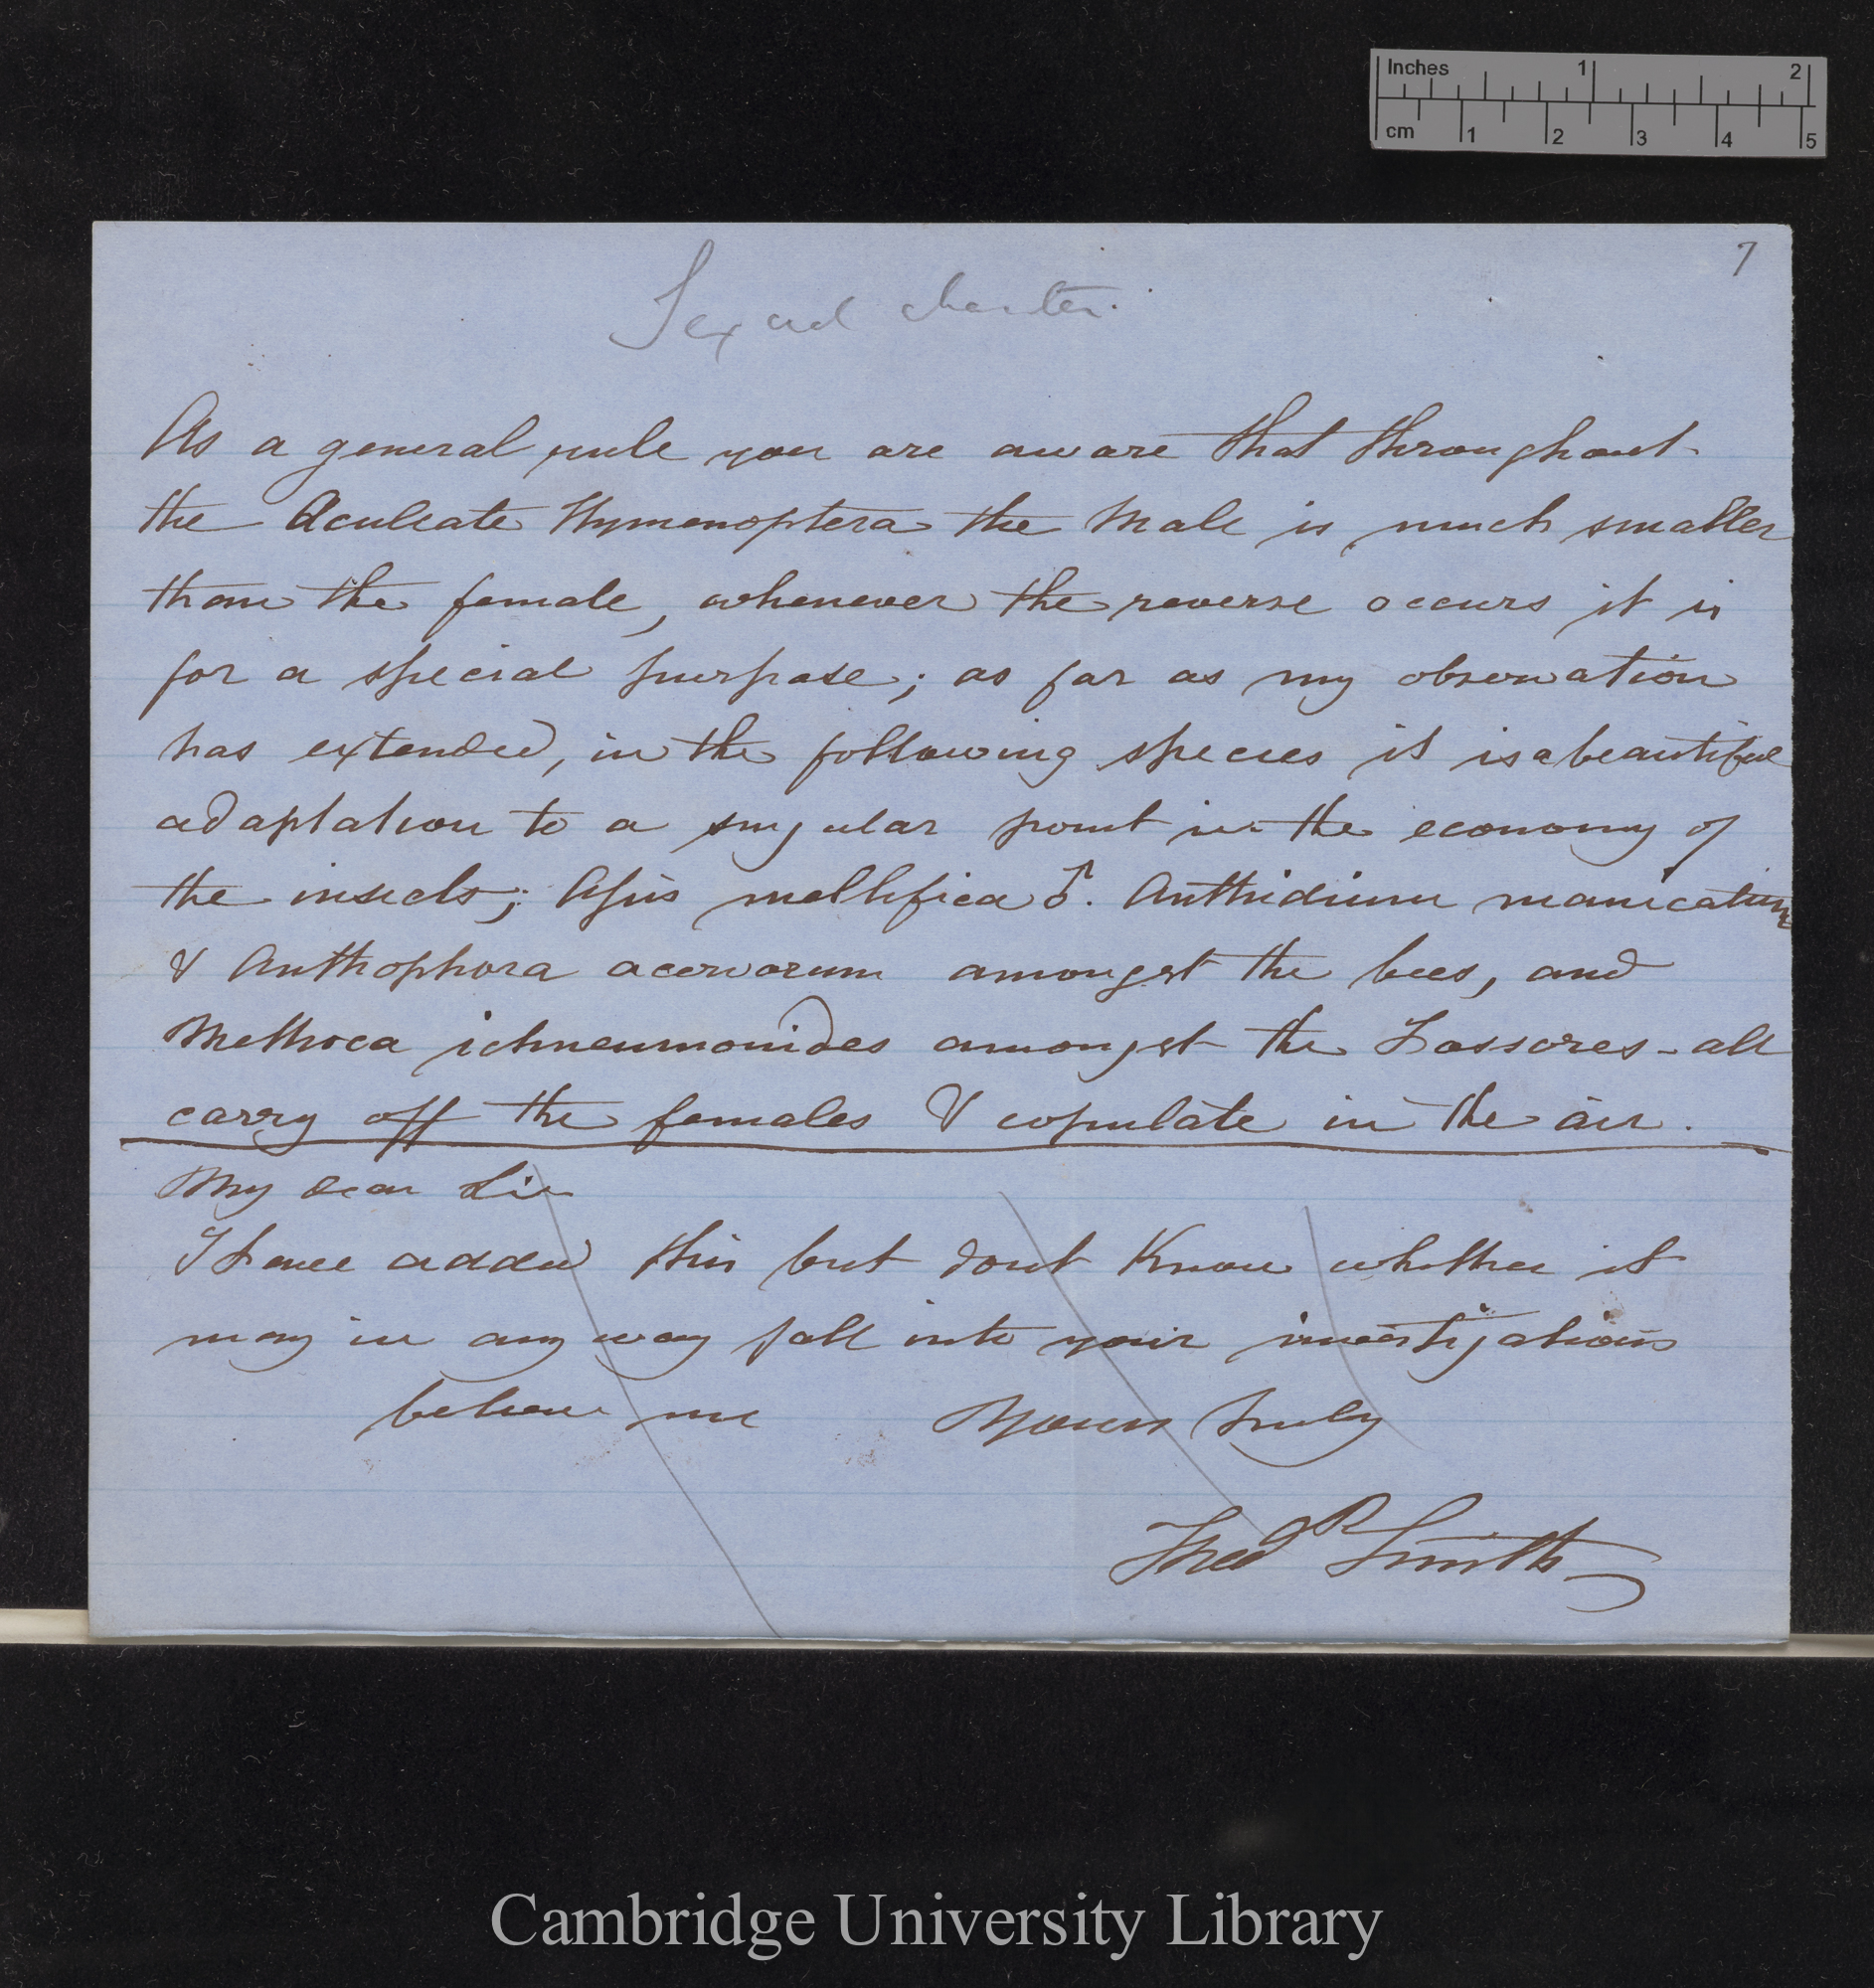 Inches 1 2
cm 1 2 3 4 5
7
Sexual
As a general rule you are aware that throughout
the Aculeate Hymenoptera the Male is much smaller
than the female, whenever the reverse occurs it is
for a special purpose; as far as my observation
has extended, in the following species it is a beautiful
adaptation to a singular point in the economy of
the insects; Apis mellifica ♂. Anthidium manicatum
& Anthophora acervorum amongst the bees, and
Methoca ichneumonides amongst the Fossores - all
carry off the females & copulate in the air.
My dear Sir
I have added this but dont know whether it
may in any way fall into your investigations
believe me Yours truly
Fredk Smith
Cambridge University Library